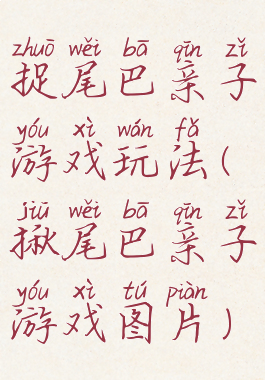 zhuō wěi bā qīn zǐ
捉尾巴亲子
yóu xì wán fǎ
游戏玩法(
jiū wěi bā qīn zǐ
揪尾巴亲子
yóu xì tú piàn
游戏图片)